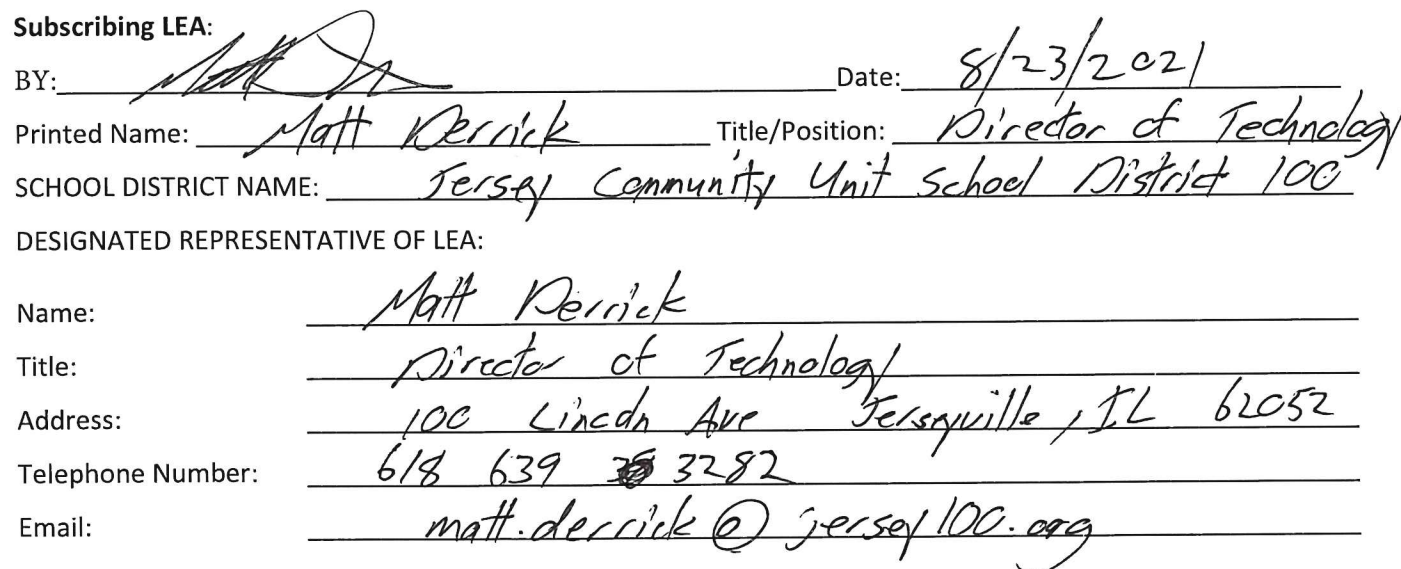 Subscribing LEA:
BY: Date: 8/23/2021
Printed Name: Matt Derrick Title/Position: Director of Technology
SCHOOL DISTRICT NAME: Jersey Community Unit School District 100
DESIGNATED REPRESENTATIVE OF LEA:
Name: Matt Derrick
Title: Director of Technology
Address: 100 Lincoln Ave Jerseyville, IL 62052
Telephone Number: 618 639 3282
Email: matt.derrick@jersey100.org